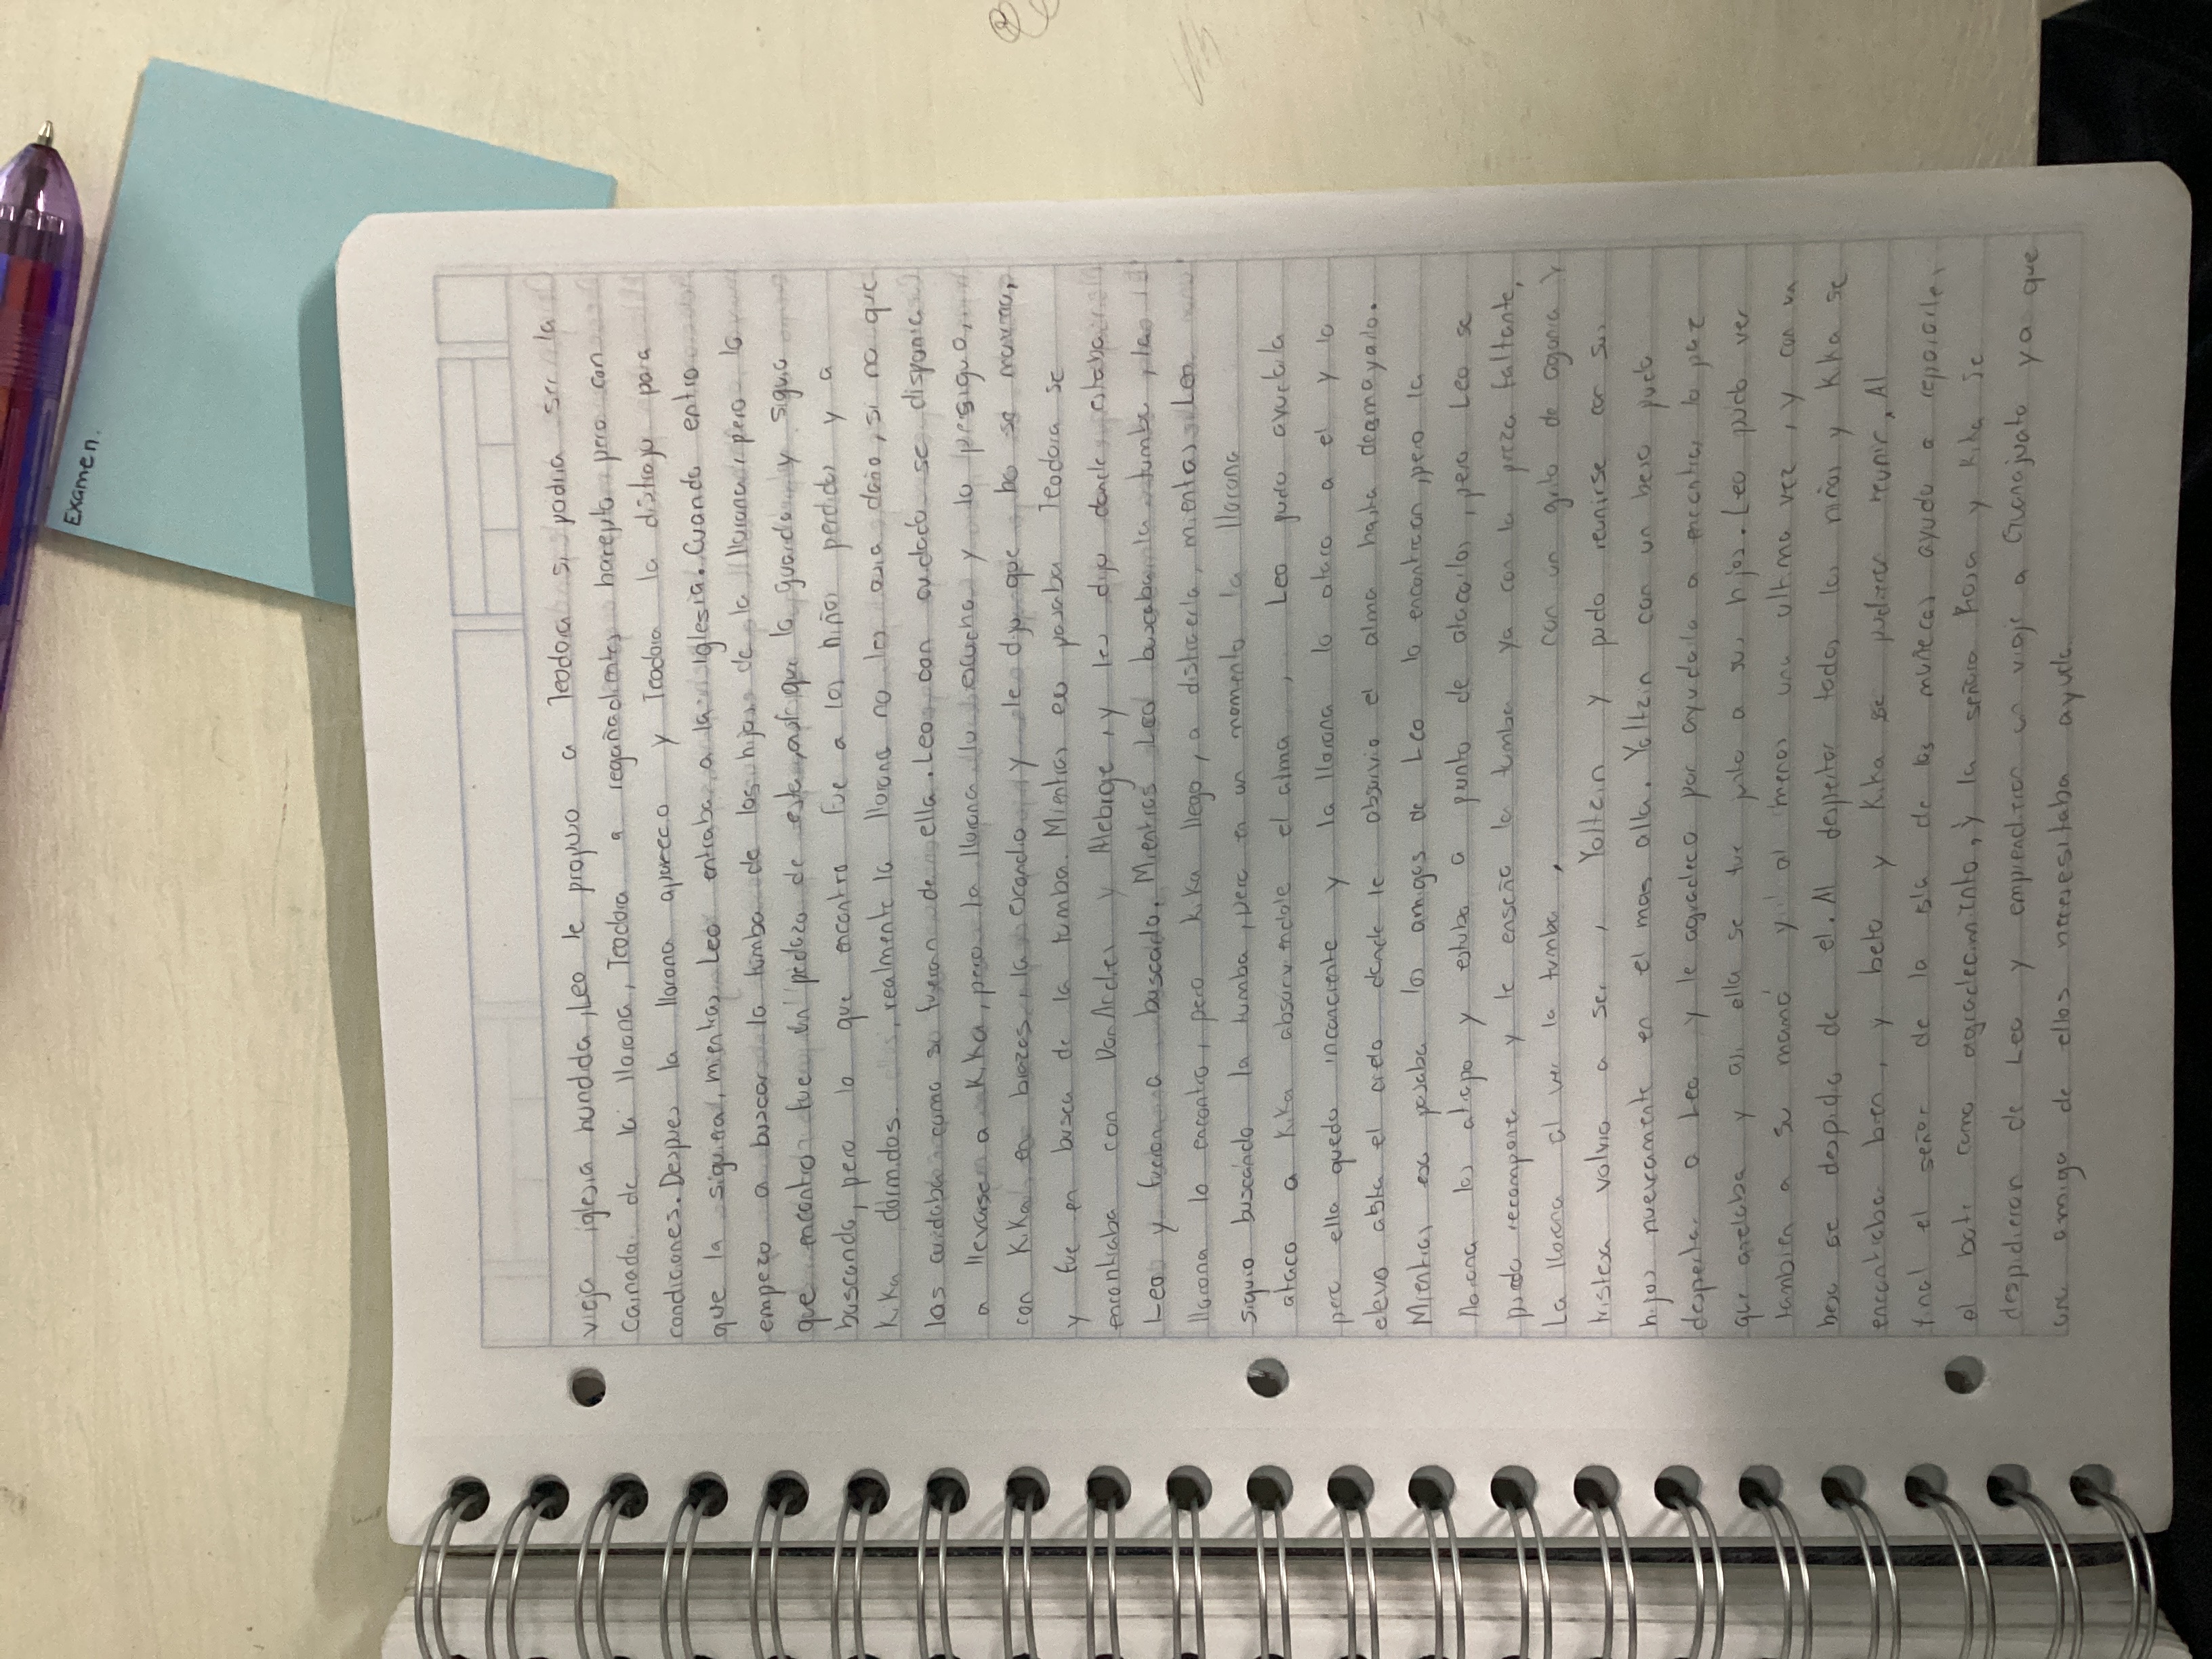 Examen.
vieja iglesia hundida, Leo le propuso a Teodora si podria ser la
Carnada de la llorona, Teodora a regañadientes harepto pero con
condiciones. Despues la llorona aparecio y Teodora la distrajo para
que la siguiera, mientras Leo entraba a la iglesia. Cuando entro
empezo a buscar la tumba de los hijos de la llorona pero lo
que encontro fue un pedazo de esta, asi que la guardo y siguio
buscando, pero lo que encontro fue a los niños perdidos y a
Kika dormidos, realmente la llorona no les asia daño, si no que
los cuidaba como si fueran de ella. Leo con cuidado se disponia
a llevarse a Kika, pero la llorona lo escucha y lo presigue,
con Kika en brazos, la escondio y le dijo que no se moviera,
y fue en busca de la tumba. Mientras eso pasaba Teodora se
encontraba con Don Andres y Alebrije, y les dijo donde estaba
Leo y fueron a buscarlo. Mientras Leo buscaba la tumba, la
llorona lo encontro, pero Kika llego, a distraerla, mientas Leo
siguio buscando la tumba, pero en un momento la llorona
ataco a Kika absorviendole el alma, Leo pudo ayudarla
pero ella quedo inconciente y la llorona lo ataco a el y lo
elevo asta el cielo donde le absorvio el alma hasta desmayarlo.
Mientras eso pasaba los amigos de Leo lo encontraron pero la
llorona los atrapo y estubo a punto de atacarlos, pero Leo se
pudo recomponer y le enseño la tumba ya con la pieza faltante,
La llorona al ver la tumba, con un grito de agonia y
tristesa volvio a ser, Yoltzin y pudo reunirse con sus
hijos nuevamente en el mas alla. Yoltzin con un beso pudo
despertar a Leo y le agradecio por ayudarla a encontrar la paz
que anelaba y asi ella se fue junto a sus hijos. Leo pudo ver
tambien a su mamá y al menos una ultima vez, y con un
beso se despidio de el. Al despertar todos los niños y Kika se
encontraban bien, y beto y Kika se pudieron reunir. Al
final el señor de la isla de las muñecas ayudo a repararles
el bote como agradecimiento, y la señora Rosa y Kika se
despidieron de Leo y emprendieron un viaje a Guanajuato ya que
una amiga de ellos necesitaba ayuda.